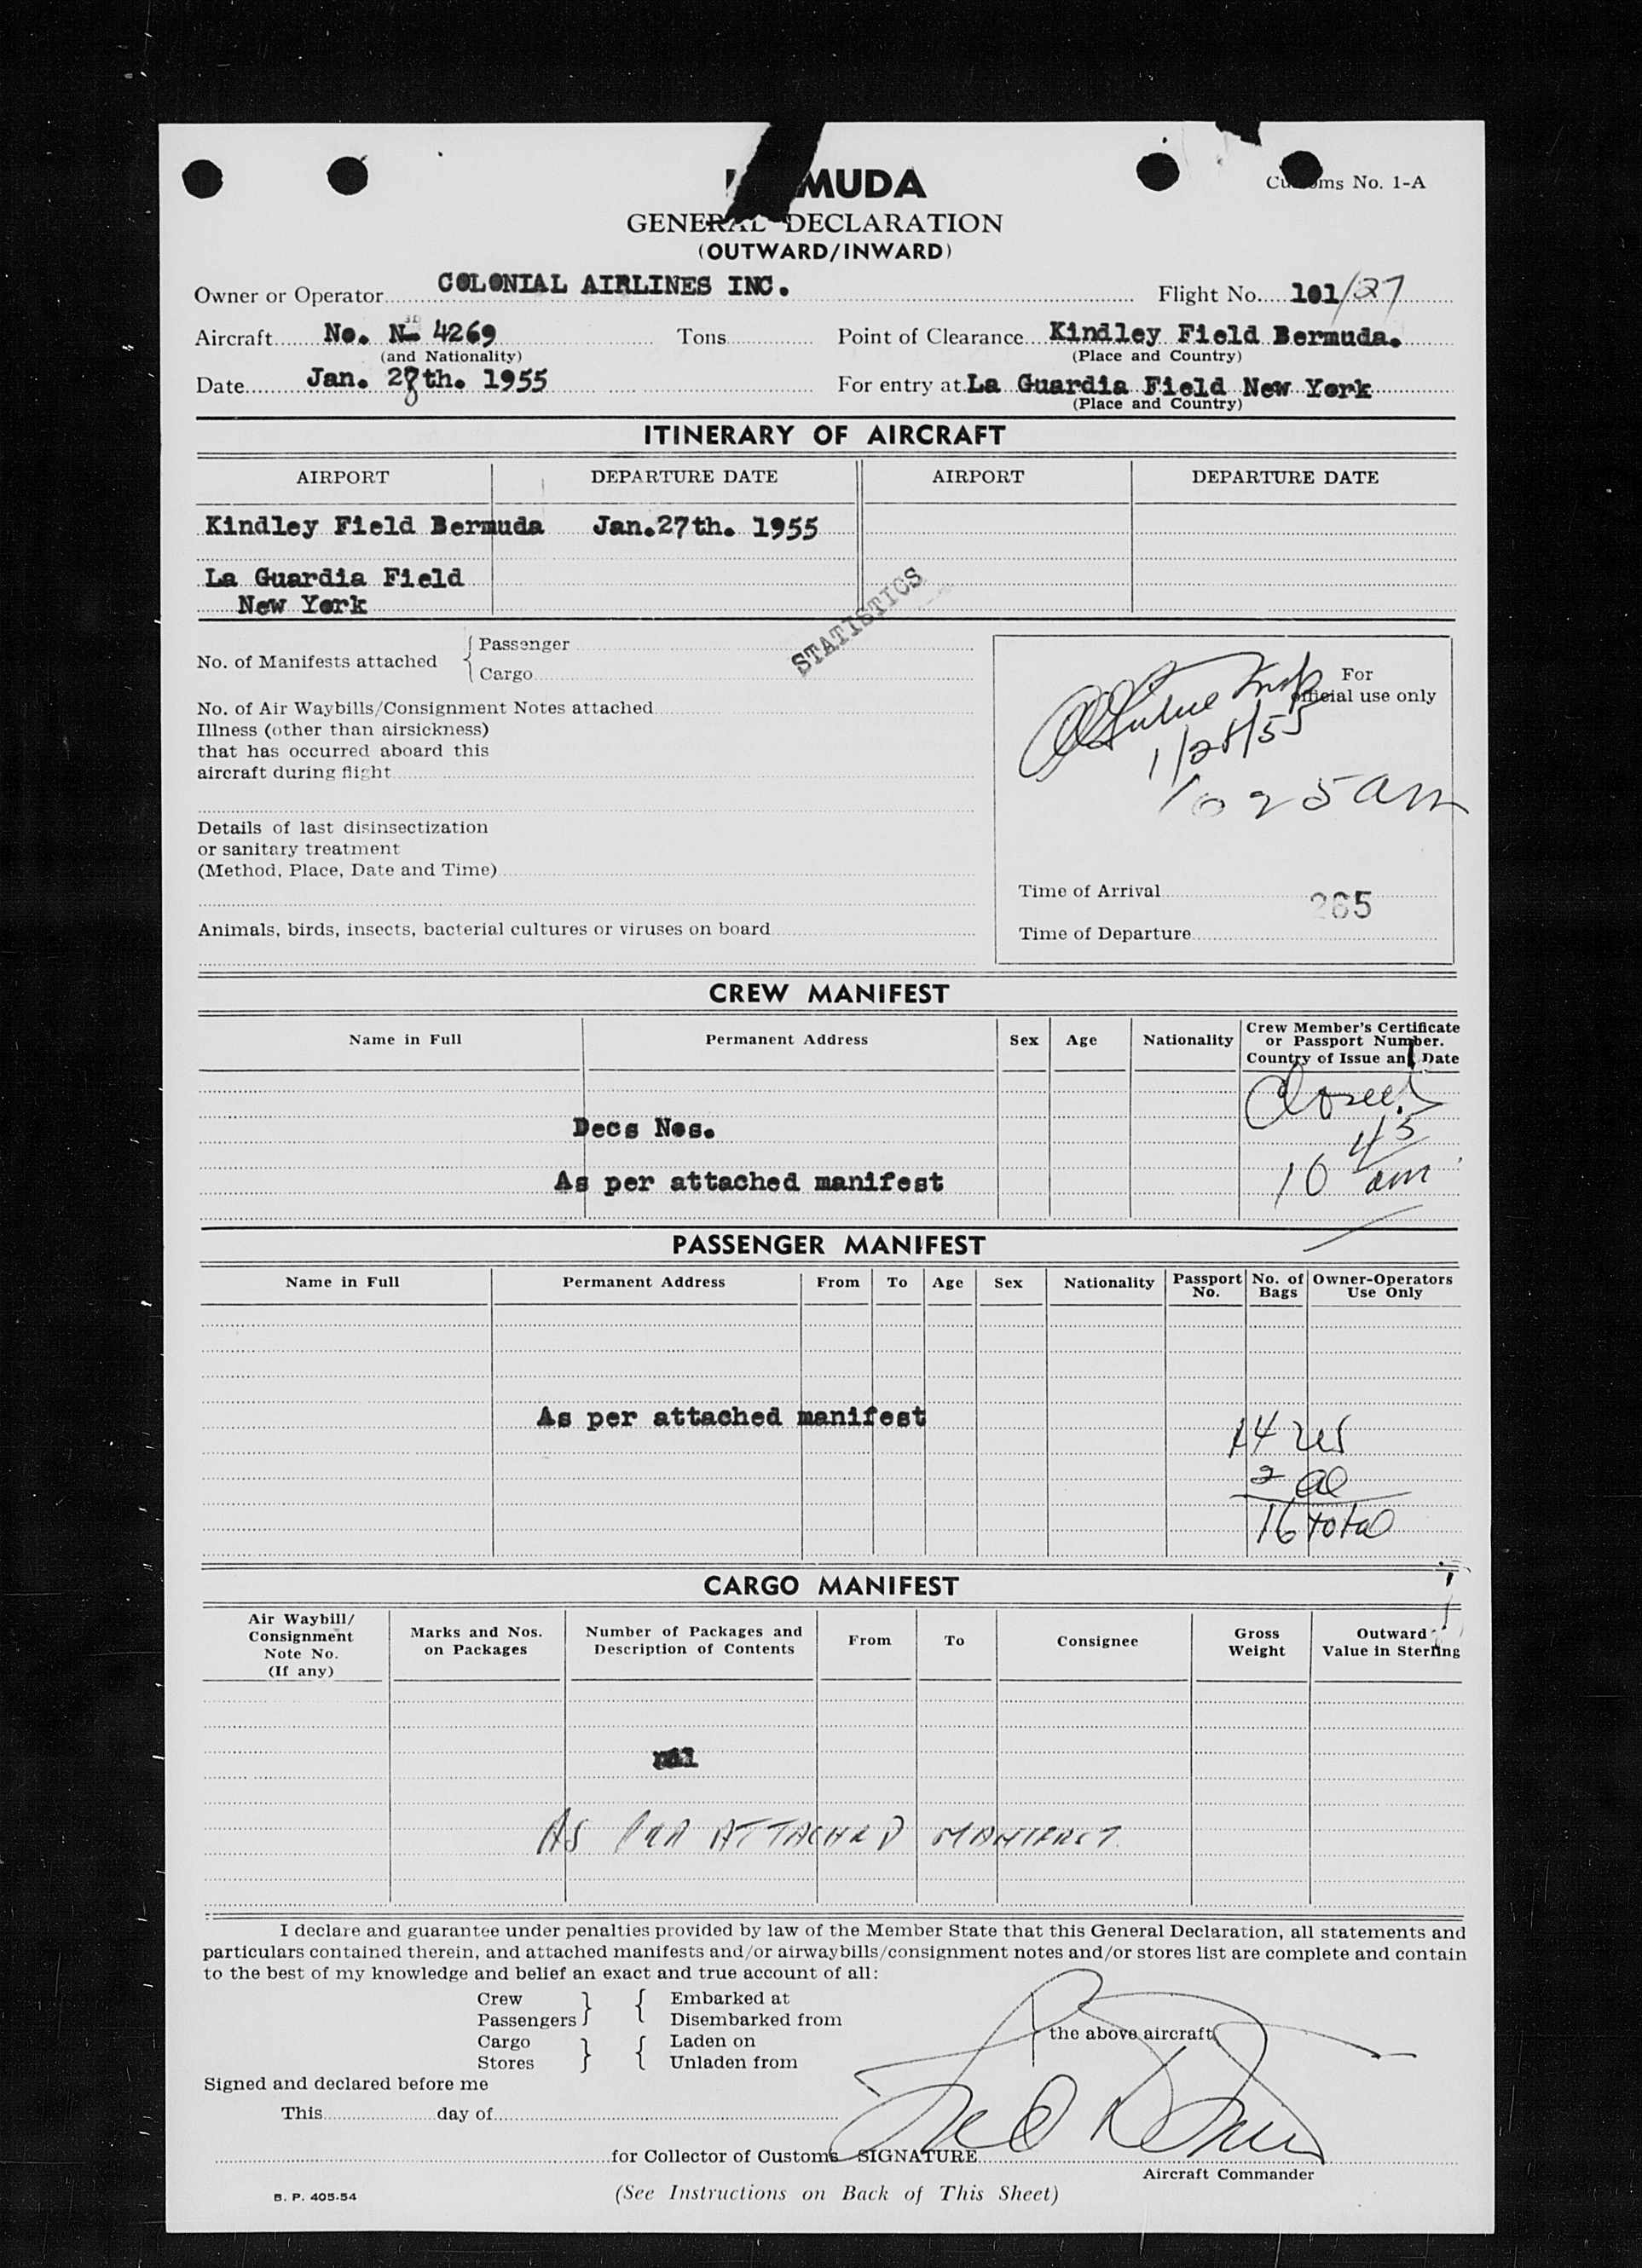 MUDA
Customs No. 1-A
GENERAL DECLARATION
(OUTWARD/INWARD)
Owner or Operator COLONIAL AIRLINES INC. Flight No. 101/27
Aircraft No. N 4269 Tons Point of Clearance Kindley Field Bermuda.
(and Nationality) (Place and Country)
Date Jan. 28th. 1955 For entry at La Guardia Field New York
(Place and Country)
ITINERARY OF AIRCRAFT
AIRPORT DEPARTURE DATE AIRPORT DEPARTURE DATE
Kindley Field Bermuda Jan.27th. 1955
La Guardia Field
New York
STATISTICS
No. of Manifests attached { Passenger
Cargo
For
official use only
1/28/55
1025 am
No. of Air Waybills/Consignment Notes attached
Illness (other than airsickness)
that has occurred aboard this
aircraft during flight
Details of last disinsectization
or sanitary treatment
(Method, Place, Date and Time)
Animals, birds, insects, bacterial cultures or viruses on board
Time of Arrival
265
Time of Departure
CREW MANIFEST
Name in Full Permanent Address Sex Age Nationality Crew Member's Certificate
or Passport Number.
Country of Issue and Date
Closed
Decs Nos.
10 45 am
As per attached manifest
PASSENGER MANIFEST
Name in Full Permanent Address From To Age Sex Nationality Passport No. No. of Bags Owner-Operators Use Only
As per attached manifest
14 US
2 al
16 total
CARGO MANIFEST
Air Waybill/ Consignment Note No. (If any) Marks and Nos. on Packages Number of Packages and Description of Contents From To Consignee Gross Weight Outward Value in Sterling
nil
AS PER ATTACHED MANIFEST.
I declare and guarantee under penalties provided by law of the Member State that this General Declaration, all statements and
particulars contained therein, and attached manifests and/or airwaybills/consignment notes and/or stores list are complete and contain
to the best of my knowledge and belief an exact and true account of all:
Crew } { Embarked at
Passengers Disembarked from
the above aircraft
Cargo } { Laden on
Stores Unladen from
Signed and declared before me
This day of
for Collector of Customs SIGNATURE
Aircraft Commander
B. P. 405-54
(See Instructions on Back of This Sheet)